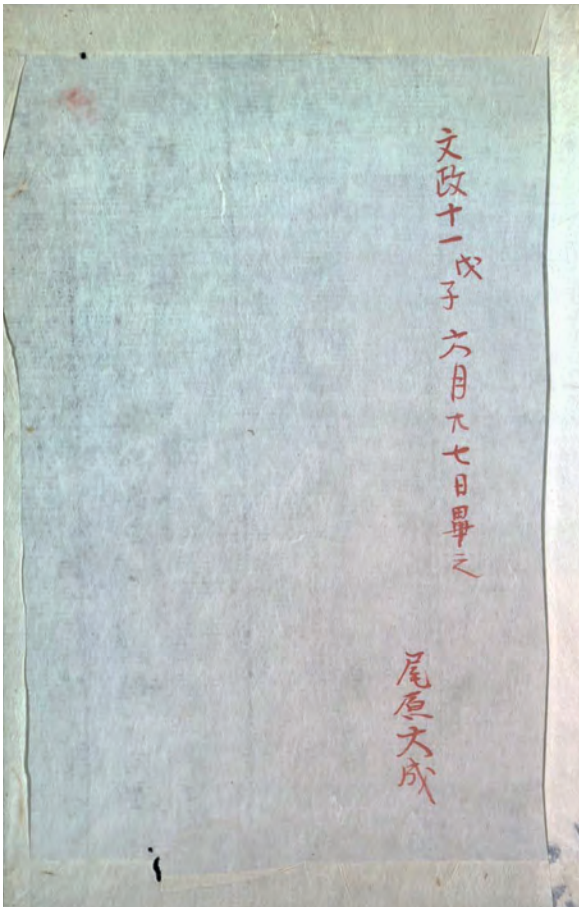 文政十一戊子六月七日畢之
尾原大成